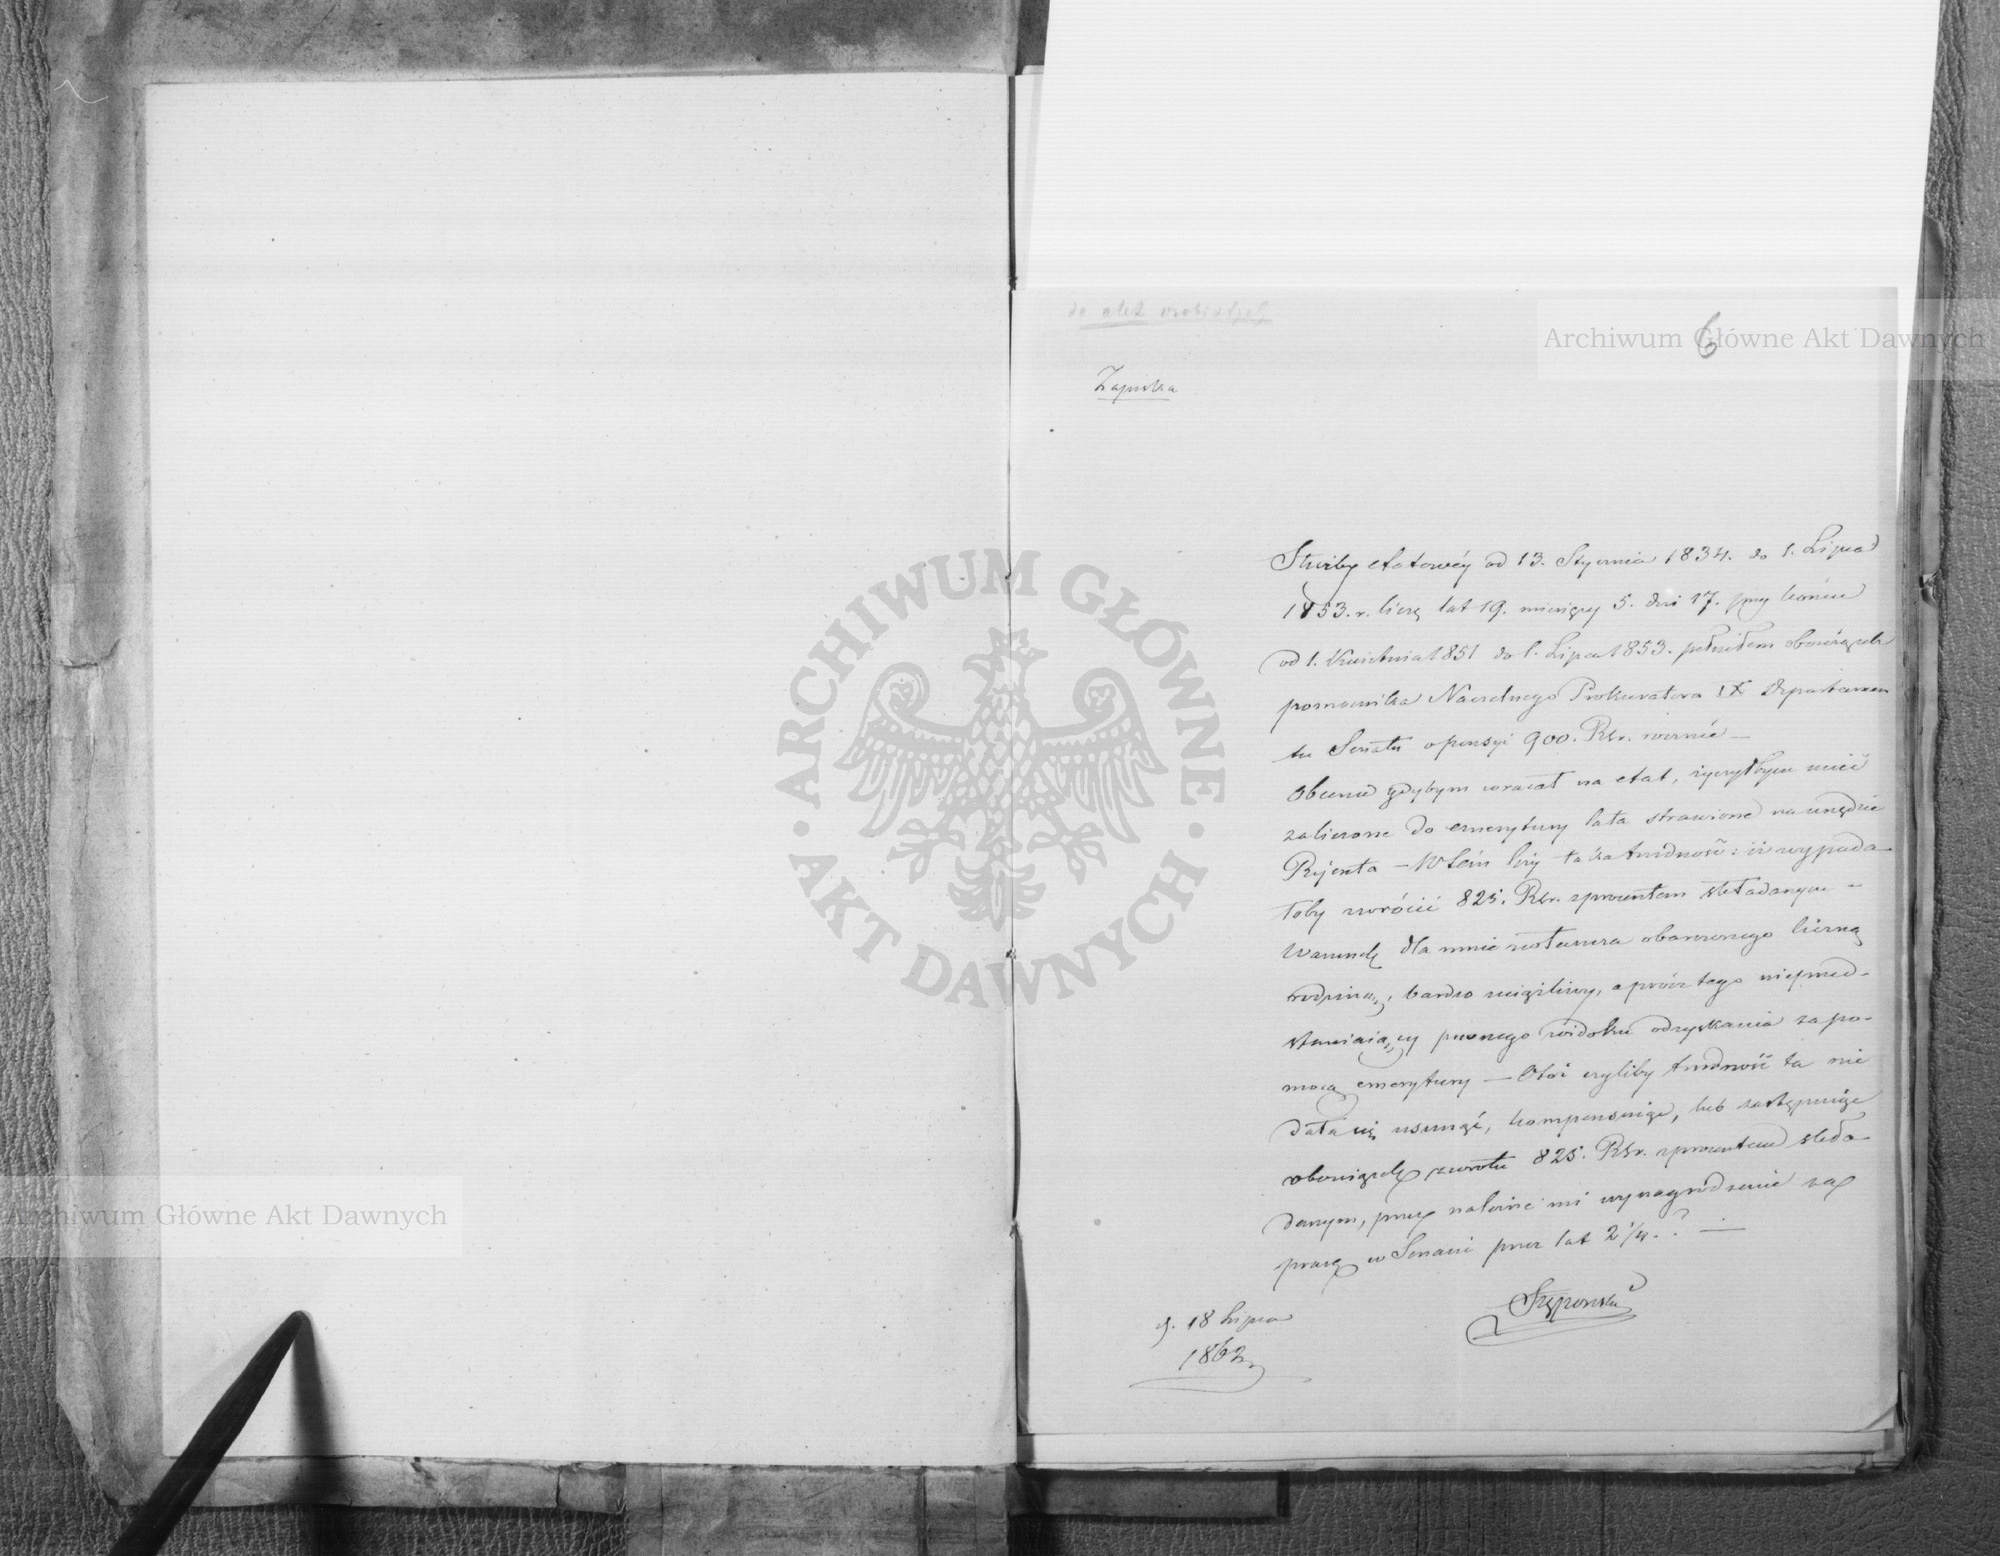 do akt osobistych
6
Zapiska
Służby etatowéy od 13. Stycznia 1834. do 1. Lipca
1853. r. liczę lat 19. miesięcy 5. dni 17. przy końcu
od 1. Kwietnia 1851 do 1. Lipca 1853. pełniłem obowiązek
pomocnika Naczelnego Prokuratora IX Departamen
tu Senatu o pensyi 900. Rsr. rocznie —
Obecnie gdybym wracał na etat, życzyłbym mieć
zaliczone do emerytury lata strawione na urzędzie
Rejenta — W tém leży taka trudność: iż wypada-
łoby zwrócić 825. Rsr. z procentem składanym -
Warunek dla mnie zwłaszcza obarczonego liczną
rodziną, bardzo uciążliwy, a prócz tego nieprzed-
stawiający pewnego widoku odzyskania za po-
mocą emerytury — Otóż czyliby trudność ta nie
dała się usunąć, kompensując, lub zastępując
obowiązek zwrotu 825. Rsr. z procentem skła
danym, przez należne mi wynagrodzenie za
pracę w Senacie przez lat 2 1/4. ? —
d. 18 Lipca
1862